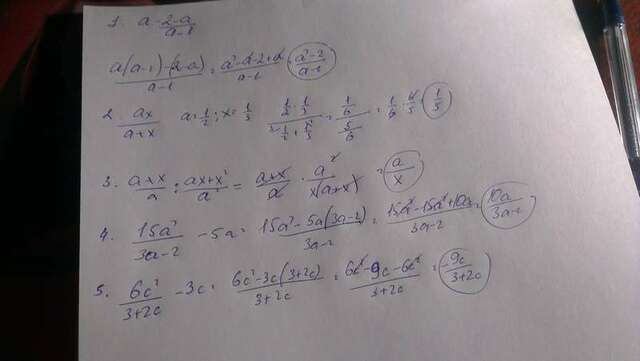 1. a - 2-a/a-1
a(a-1)-(2-a)/a-1 = a²-a-2+a/a-1 = a²-2/a-1
2. ax/a+x a=1/2; x=1/3 1/2·1/3 / 1/2+1/3 = 1/6 / 5/6 = 1/6·6/5 = 1/5
3. a+x/a : ax+x²/a² = a+x/a · a²/x(a+x) = a/x
4. 15a²/3a-2 - 5a = 15a²-5a(3a-2)/3a-2 = 15a²-15a²+10a/3a-2 = 10a/3a-2
5. 6c²/3+2c - 3c = 6c²-3c(3+2c)/3+2c = 6c²-9c-6c²/3+2c = -9c/3+2c